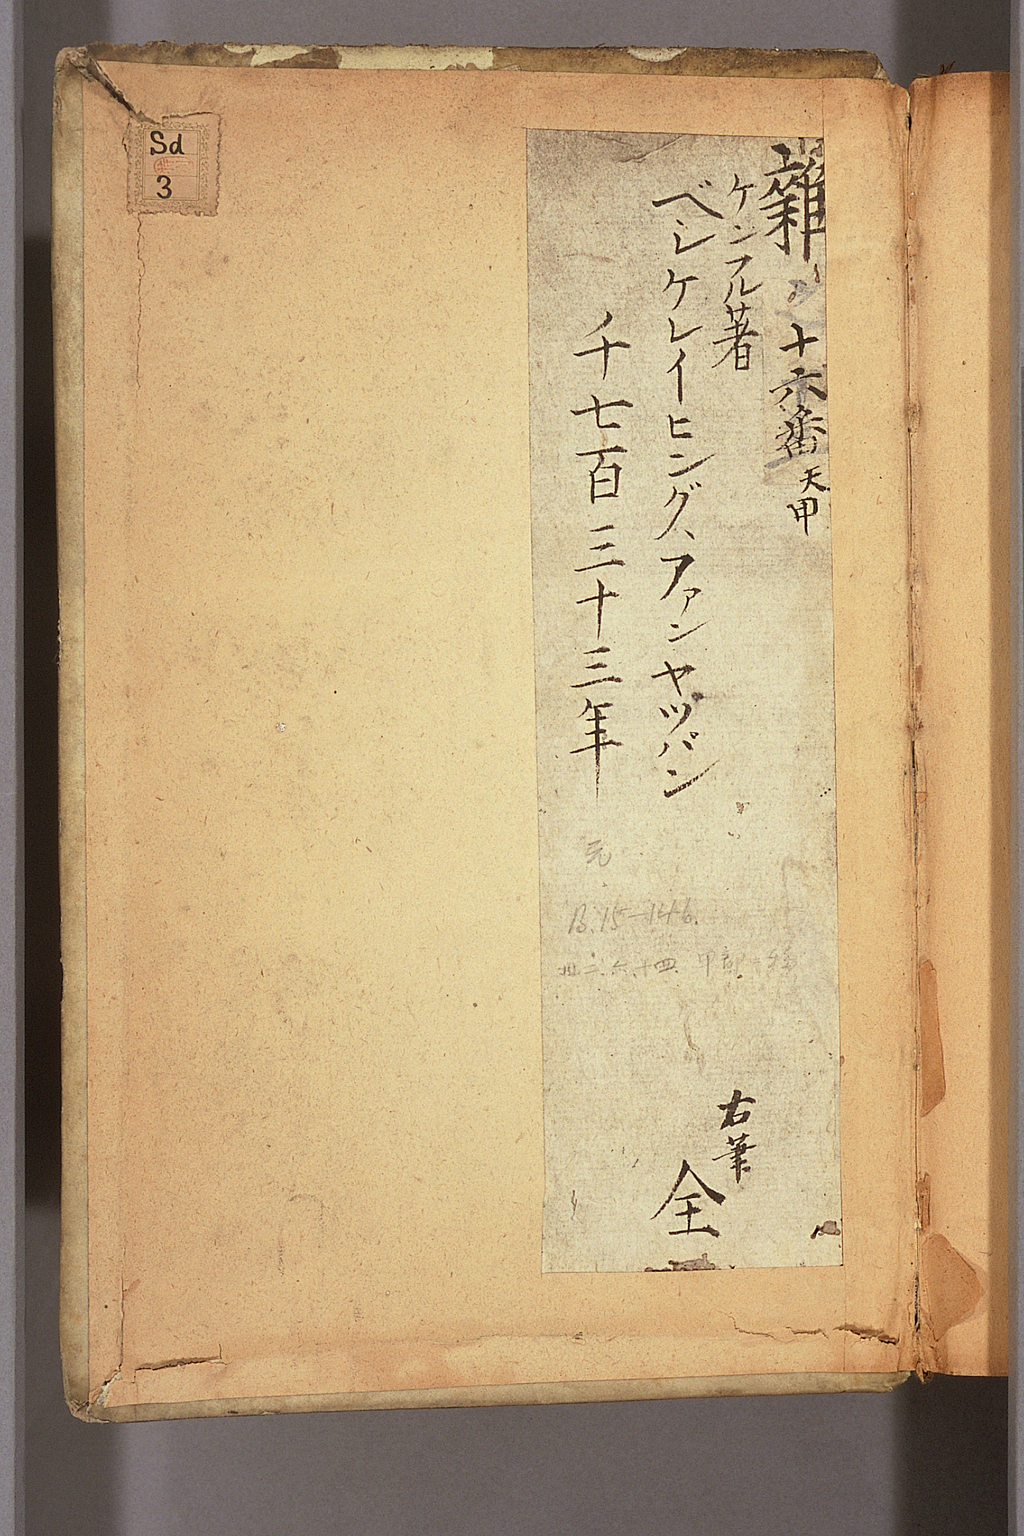 Sd
3
雜
十六番 天甲
ケンフル著
ベシケレイヒング、ファンヤツパン
千七百三十三年
元
B.15-146.
右筆
全